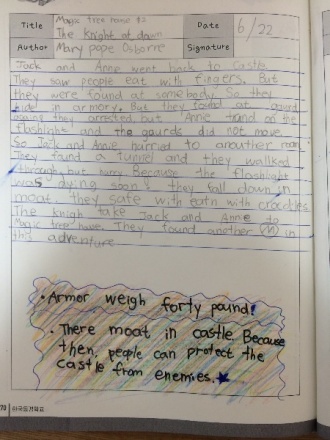 Title
Magic tree house #2
The Knight at dawn
Date
6/22
Author
Mary pope Osborne
Signature
Jack and Annie went back to Castle.
They saw people eat with fingers. But
they were found at somebody. So they
hide in armory. But they found at guard
again. They arrested, but Annie turnd on the
flashlight and the gaurds did not move.
So Jack and Annie harried to anauther room.
They found a tunnel and they walked
through, but hurry. Because the flashlight
was dying soon. they fall down in
moat. they safe with eatn with crocdles
The knigh take Jack and Annie to
Magic tree house. They found another M in
this adventure
• Armor weigh forty pound!
• There moat in castle. Because
then, people can protect the
castle from enemies.
70